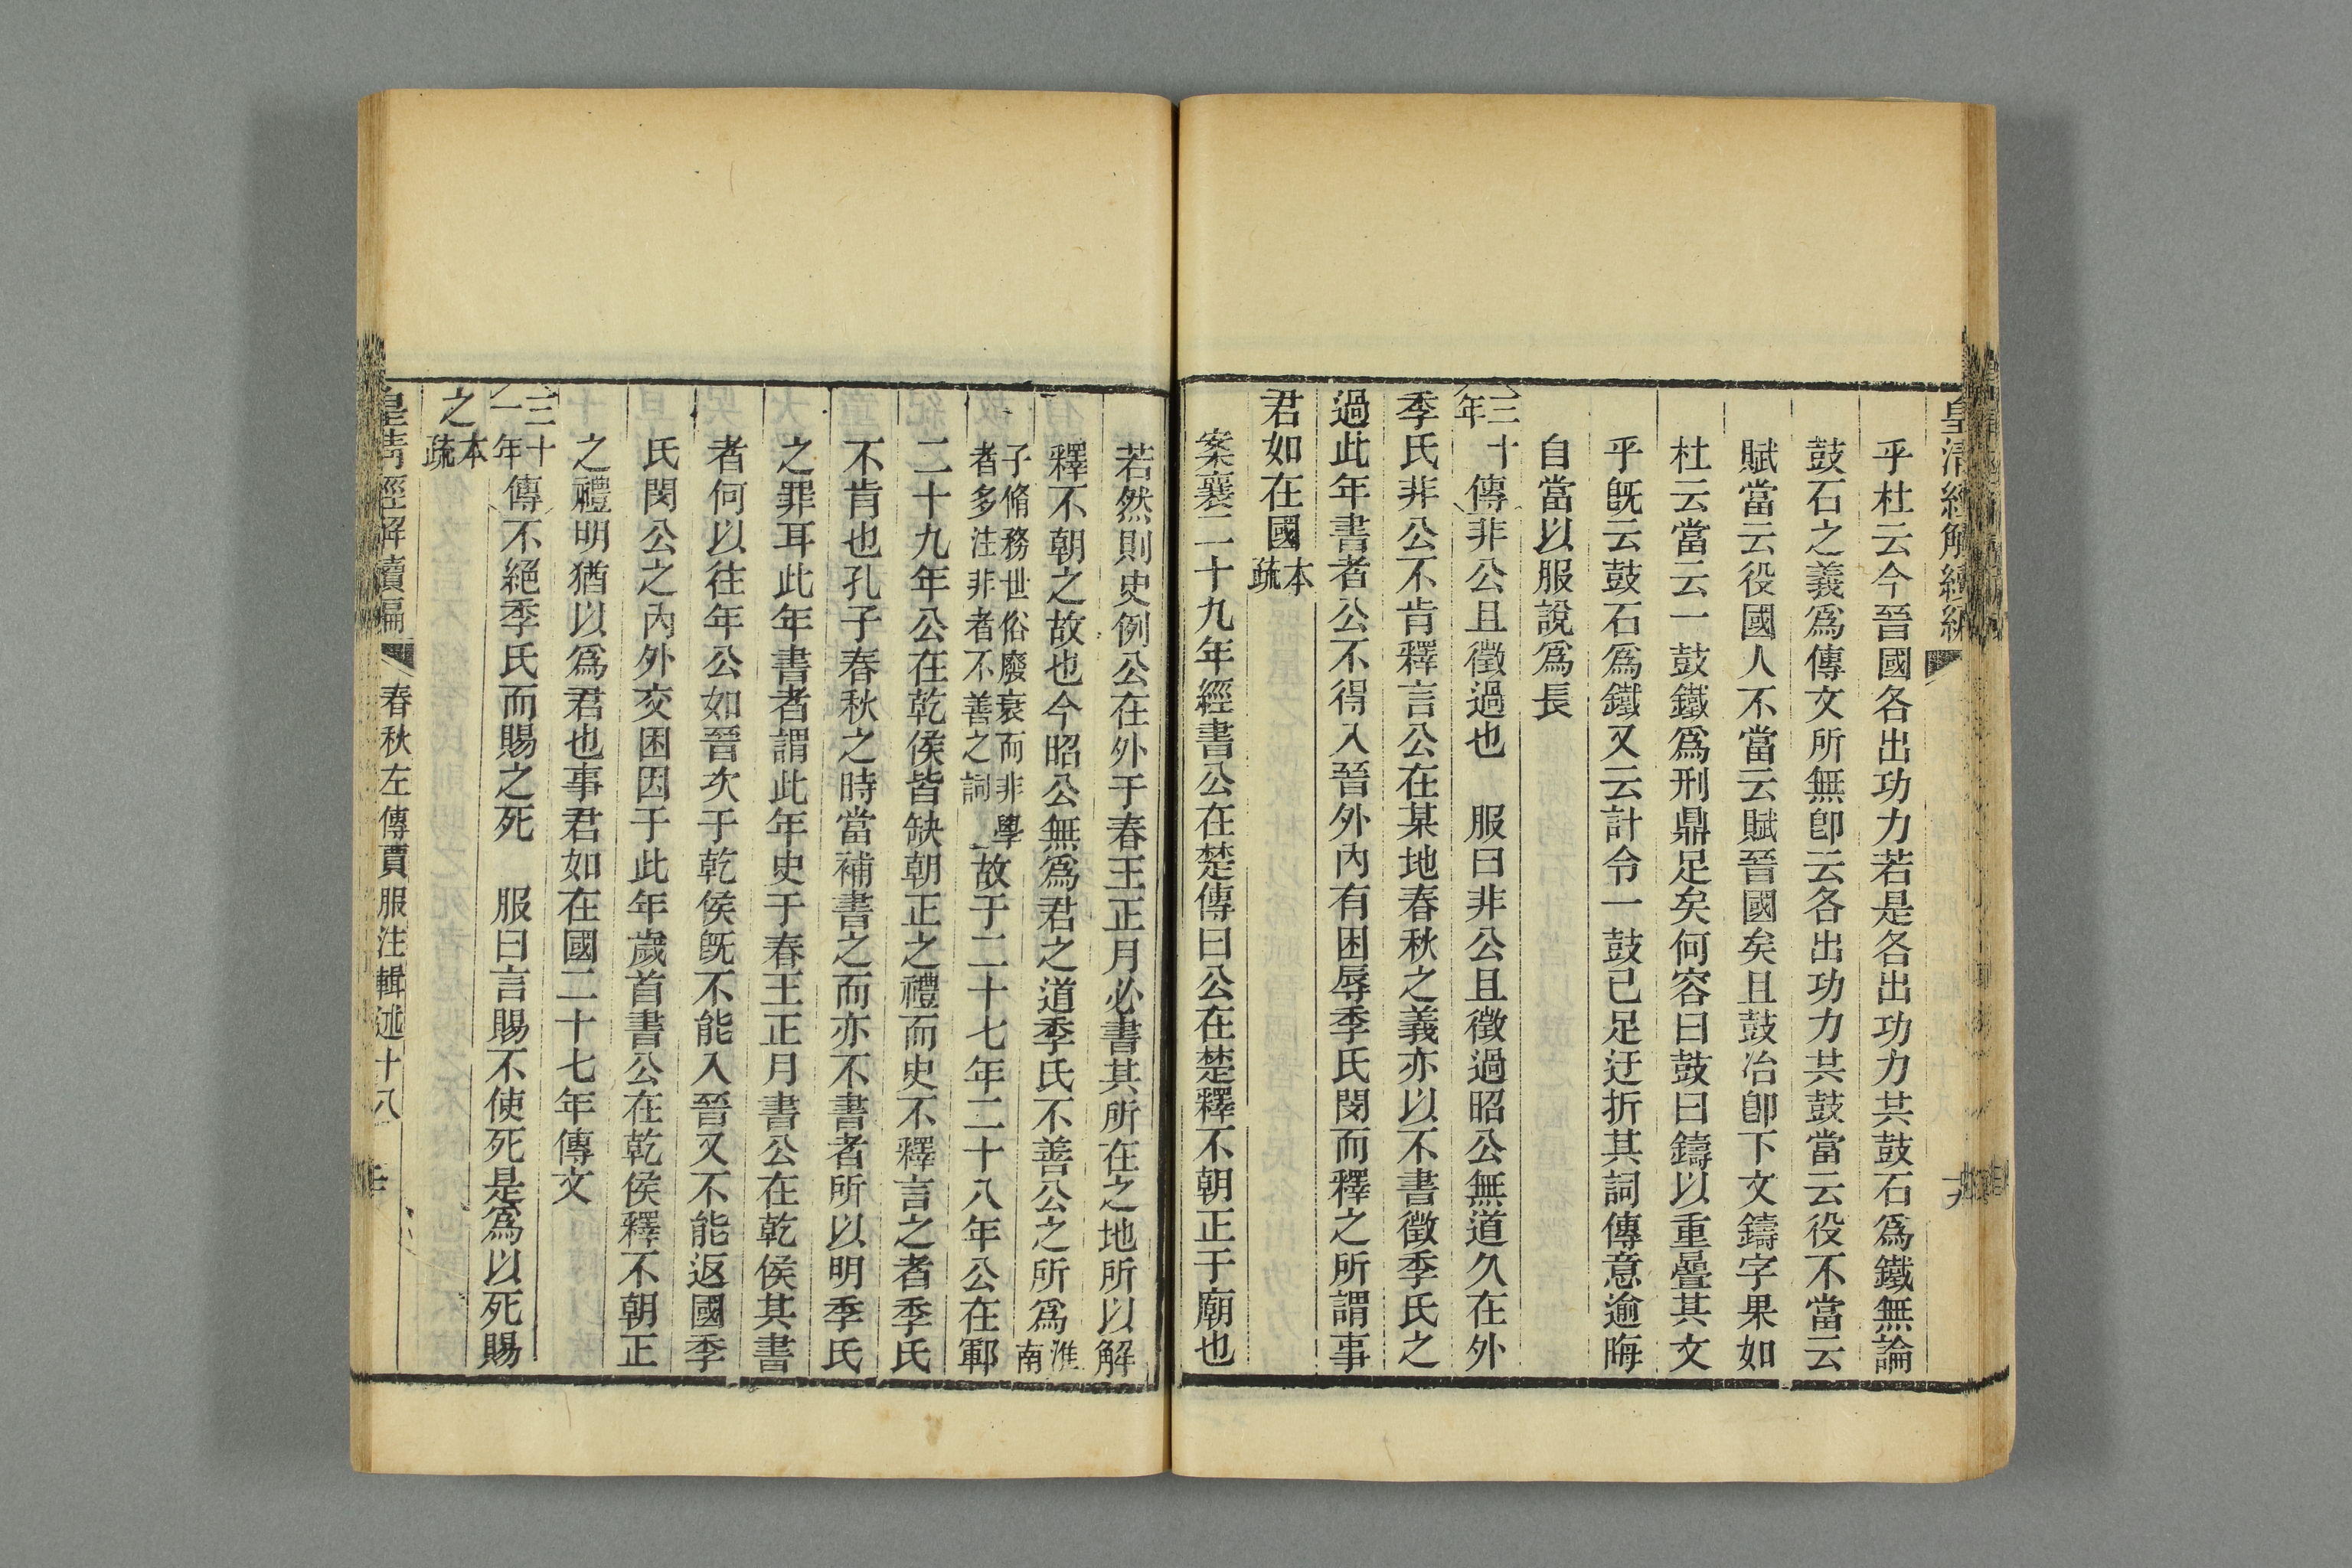 皇清經解續編
乎杜云今晉國各出功力若是各出功力共鼓石爲鐵無論
鼓石之義爲傳文所無卽云各出功力共鼓當云役不當云
賦當云役國人不當云賦晉國矣且鼓冶卽下文鑄字果如
杜云當云一鼓鐵爲刑鼎足矣何容曰鼓曰鑄以重疊其文
乎旣云鼓石爲鐵又云計令一鼓已足迂折其詞傳意逾晦
自當以服說爲長
三十年傳非公且徵過也　服曰非公且徵過昭公無道久在外
季氏非公不肯釋言公在某地春秋之義亦以不書徵季氏之
過此年書者公不得入晉外內有困辱季氏閔而釋之所謂事
君如在國本疏
案襄二十九年經書公在楚傳曰公在楚釋不朝正于廟也
若然則史例公在外于春王正月必書其所在之地所以解
釋不朝之故也今昭公無爲君之道季氏不善公之所爲淮南
子脩務世俗廢衰而非學者多注非者不善之詞故于二十七年二十八年公在鄆
二十九年公在乾侯皆缺朝正之禮而史不釋言之者季氏
不肯也孔子春秋之時當補書之而亦不書者所以明季氏
之罪耳此年書者謂此年史于春王正月書公在乾侯其書
者何以往年公如晉次于乾侯旣不能入晉又不能返國季
氏閔公之內外交困因于此年歲首書公在乾侯釋不朝正
之禮明猶以爲君也事君如在國二十七年傳文
三十一年傳不絕季氏而賜之死　服曰言賜不使死是爲以死賜
之本疏
皇清經解續編　春秋左傳賈服注輯述十八